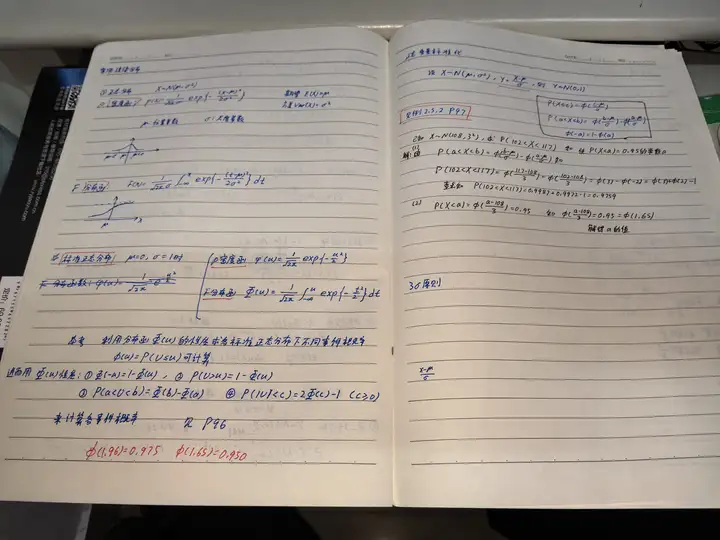 常用连续分布
① 正态分布 X~N(μ,σ²)
P(密度函) p(x)=1/√2πσ exp{-(x-μ)²/2σ²} 期望 E(X)=μ
方差 Var(X)=σ²
μ-位置参数 σ:尺度参数
F 分布函 F(x)=1/√2πσ ∫ exp{-(t-μ)²/2σ²}dt
标准正态分布 μ=0, σ=1时
P密度函 φ(u)=1/√2π exp{-u²/2}
F分布函 Φ(u)=1/√2π ∫ exp{-t²/2}dt
利用分布函Φ(u)的 标准正态分布 不同事件概率
φ(u)=P(U≤u)可计算
Φ(u)信息: ① Φ(-a)=1-Φ(a), ② P(U>u)=1-Φ(u)
③ P(a<U<b)=Φ(b)-Φ(a) ④ P(|U|<c)=2Φ(c)-1 (c≥0)
计算各事件概率 见 P96
φ(1.96)=0.975 φ(1.65)=0.950
正态变量标准化
X~N(μ,σ²), Y=(X-μ)/σ, 则 Y~N(0,1)
P(X≤c)=φ((c-μ)/σ)
P(a<X≤b)=φ((b-μ)/σ)-φ((a-μ)/σ)
φ(-a)=1-φ(a)
2.5.2 P97
已知 X~N(108,3²), 求 P(102<X<117) 和 P(X<a)=0.95
(1)
解: P(a<X<b)=φ((b-μ)/σ)-φ((a-μ)/σ) 知
P(102<X<117)=φ((117-108)/3)-φ((102-108)/3)=φ(3)-φ(-2)=φ(3)+φ(2)-1
查表知 P(102<X<117)=0.9987+0.9772-1=0.9759
(2) P(X<a)=φ((a-108)/3)=0.95 知 φ((a-108)/3)=0.95=φ(1.65)
解得a的值
3σ原则
(X-μ)/σ